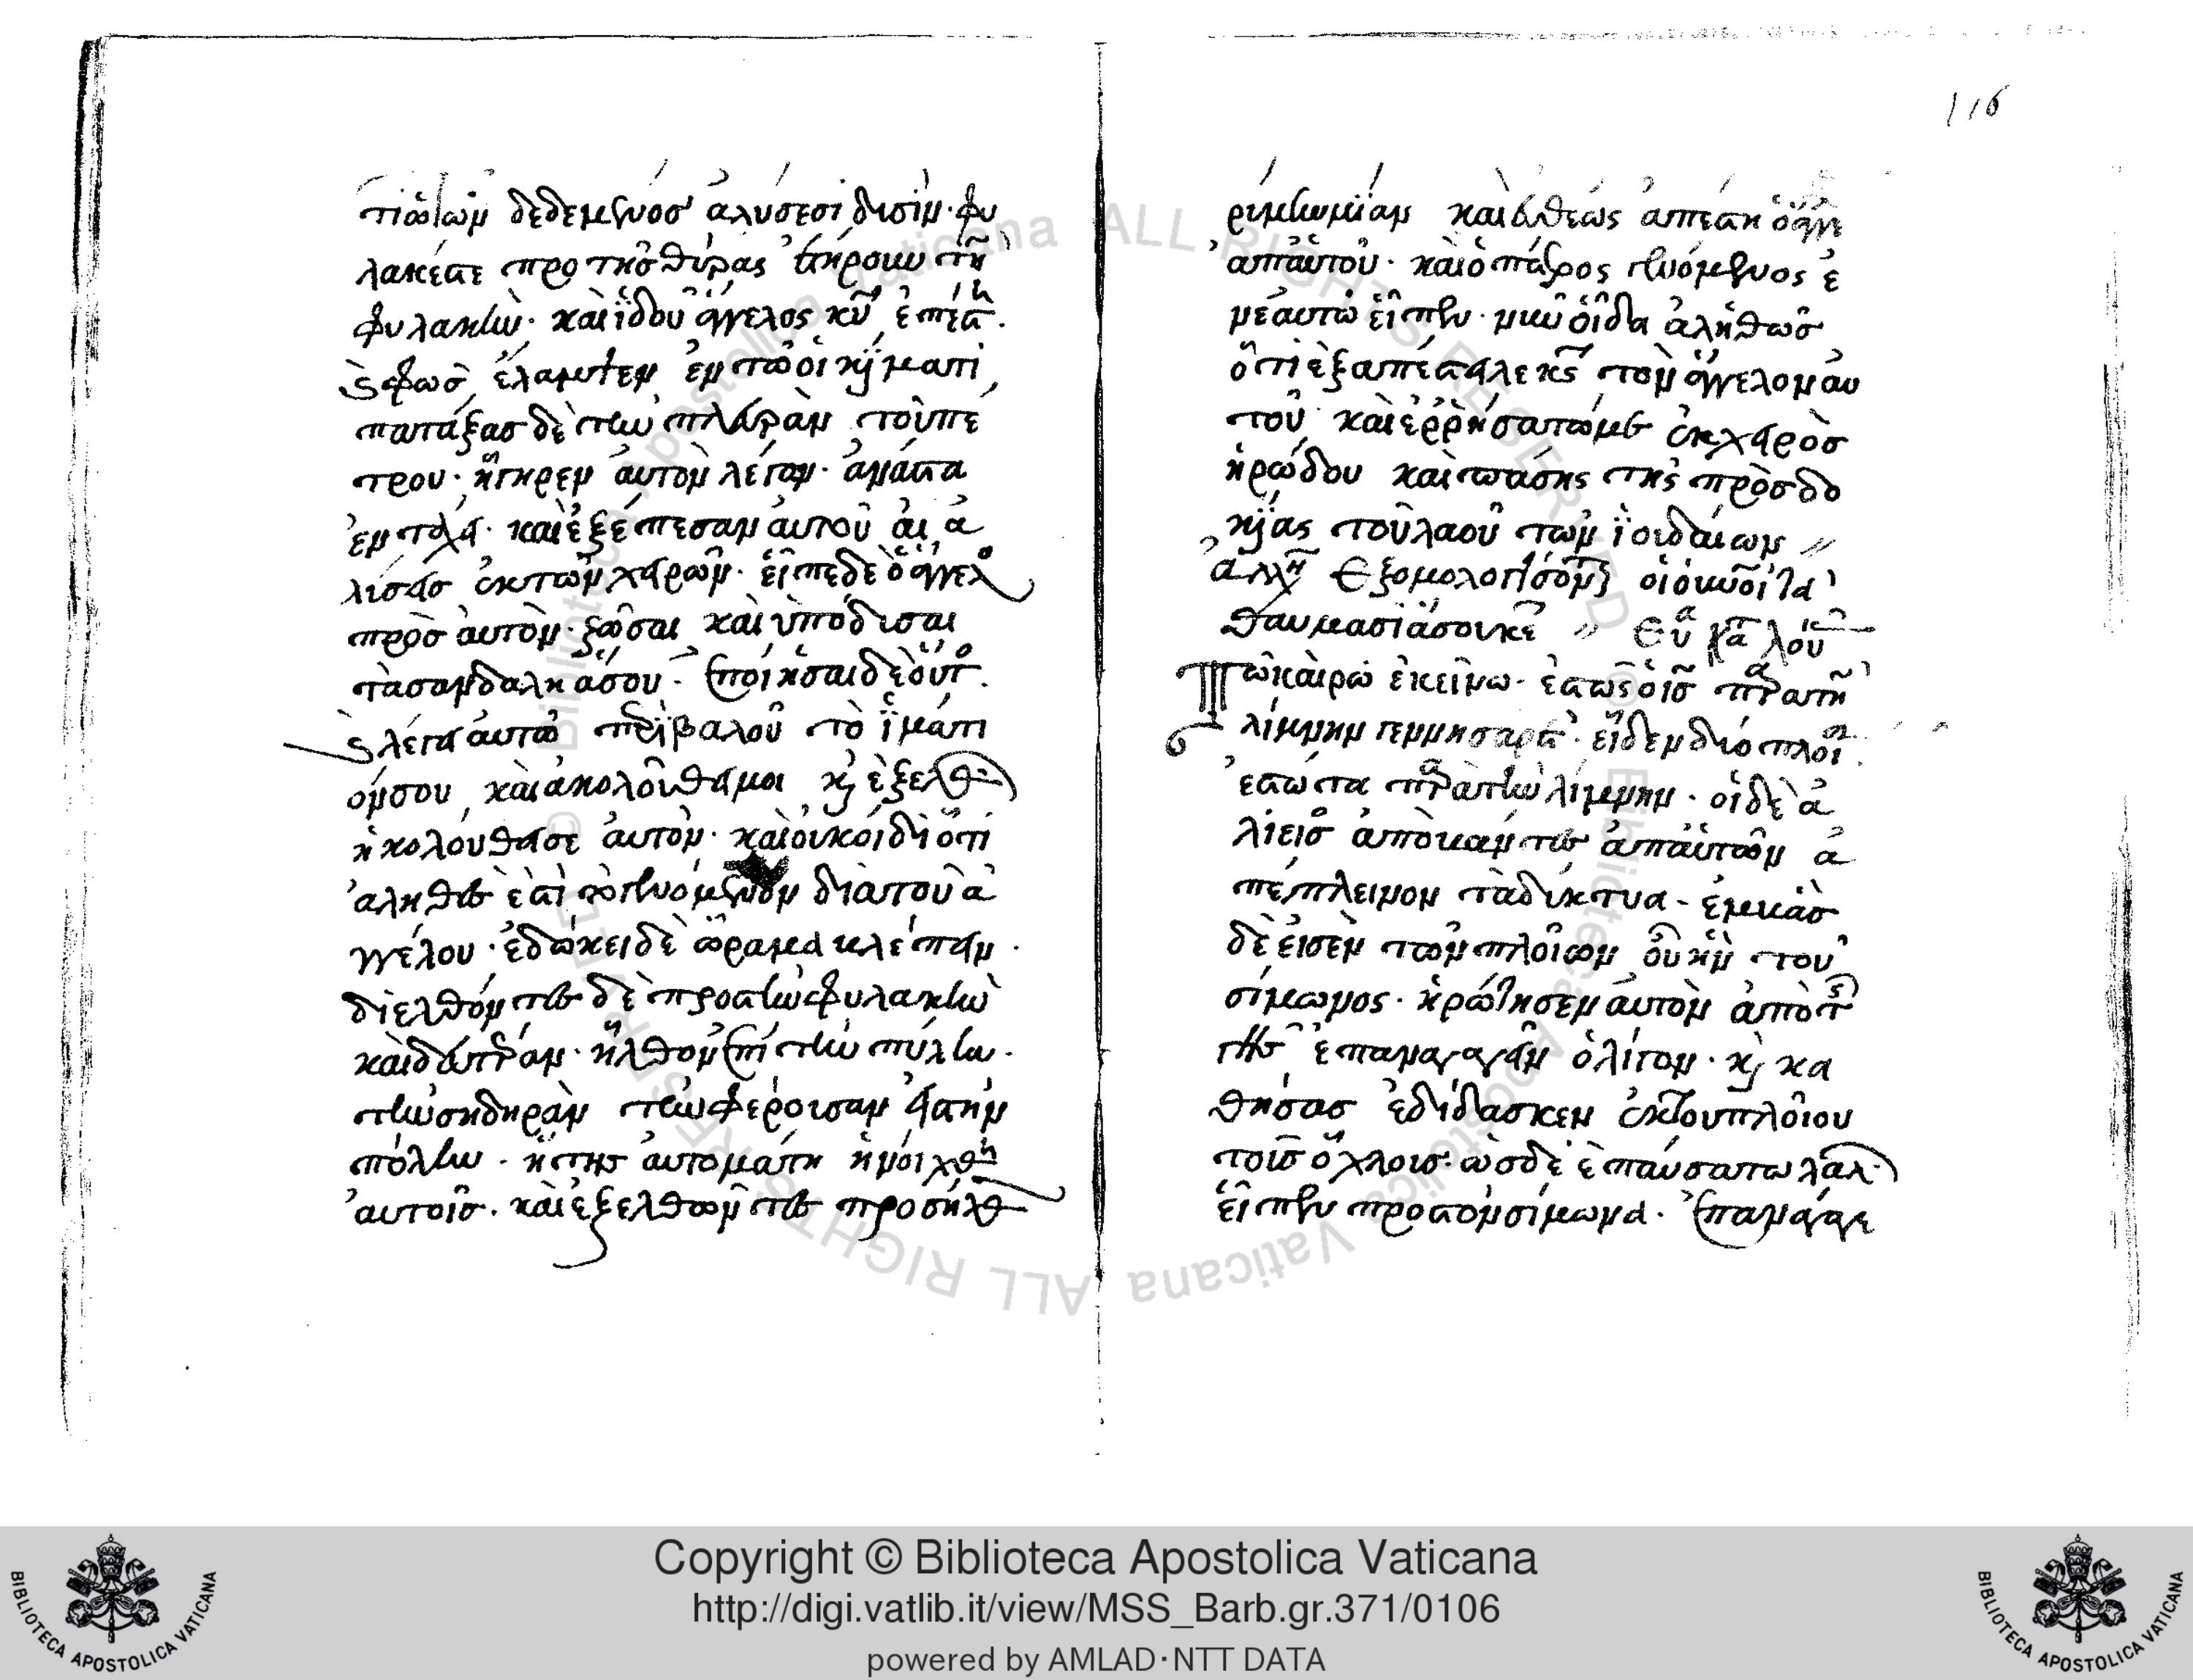 116
τιωτῶν δεδεμένος ἁλύσεσι δυσὶν· φυ
λακέστε προ της θύρας ἐτήρουν τὴν
φυλακὴν· καὶ ἰδοὺ ἄγγελος κυ ἐπέστη
κ φως ἔλαμψεν ἐν τῶ οἰκήματι
πατάξας δὲ τὴν πλευρὰν τοῦ πέ
τρου· ἤγηρεν αὐτὸν λέγων· ἀνάστα
ἐν τάχει· καὶ ἐξέπεσαν αὐτοῦ αι ἁ
λίσεις ἐκ τῶν χειρῶν· εἶπε δε ὁ ἄγγελος
πρὸς αὐτὸν· ζῶσαι καὶ ὑπόδισαι
τὰ σανδαλήα σου· ἐποίησαι δὲ οὕτ
κ λέγει αὐτῶ περιβαλοῦ τὸ ἱμάτι
όν σου καὶ ἀκολούθει μοι κ ἐξελθ
ἠκολούθεισε αὐτὸν· καὶ οὐκ οίδι ὅτι
ἀληθὲς ἐστὶ τὸ γινόμενον διὰ τοῦ ἀ
γγέλου· ἐδώκει δὲ ὥραμα κλέπειν
διελθόντες δὲ πρόστην φυλακὴν
καὶ δευτέραν· ἦλθον ἐπὶ τὴν πύλην·
τὴν σηδηρὰν τὴν φέρουσαν εἰς τὴν
πόλην· ἥτης αὐτομάτη ἠνοίχθη
αὐτοῖς· καὶ ἐξελθῶντες προσῆλθ
ρύμην μίαν καὶ εὐθέως ἀπέστη ὁ ἄγγε
ἀπ' αὐτοῦ· καὶ ὁ πέτρος γενόμενος ἐ
μέαυτῶ εἶπεν· νιῦν οἶδα ἀλήθως
ὅτι ἐξαπέστειλε κς τὸν ἄγγελον αυ
τοῦ καὶ ἐρρήσατώμε ἐκ χειρὸς
ἡρώδου καὶ πάσης τῆς πρὸσδο
κίας τοῦ λαοῦ τῶν ϊουδαίων //
ἀλλη Εξομολογήσοντ οἱ ουνοι τὰ
θαυμασϊά σου κε // Ευα κατα λου
Τῶ καιρῶ ἐκείνω· ἑστὼς ὁ ισ παρα τὴν
λίμνην γεννησαρετ· εἶδεν δύο πλοῖ
ἑστῶτα παρὰ τὴν λίμνην· οἱ δὲ ἁ
λιεῖς ἀποβάντες ἀπ' αὐτῶν ἀ
πέπλεινον τὰ δίκτυα· ἐμβὰς
δὲ εἰσὲν τῶν πλοίων οὗ ἦν του
σίμωνος· ἠρώτησεν αὐτὸν ἀπὸ τ
γῆς ἐπαναγαγεῖν ὀλίγον· κ κα
θήσας ἐδίδασκεν ἐκ τοῦ πλοίου
τοῖς ὄχλοις· ὡς δὲ ἐπαύσατω λαλ
εἶπεν πρὸς τὸν σίμωνα· ἐπανάγαγε
Copyright © Biblioteca Apostolica Vaticana
http://digi.vatlib.it/view/MSS_Barb.gr.371/0106
powered by AMLAD·NTT DATA